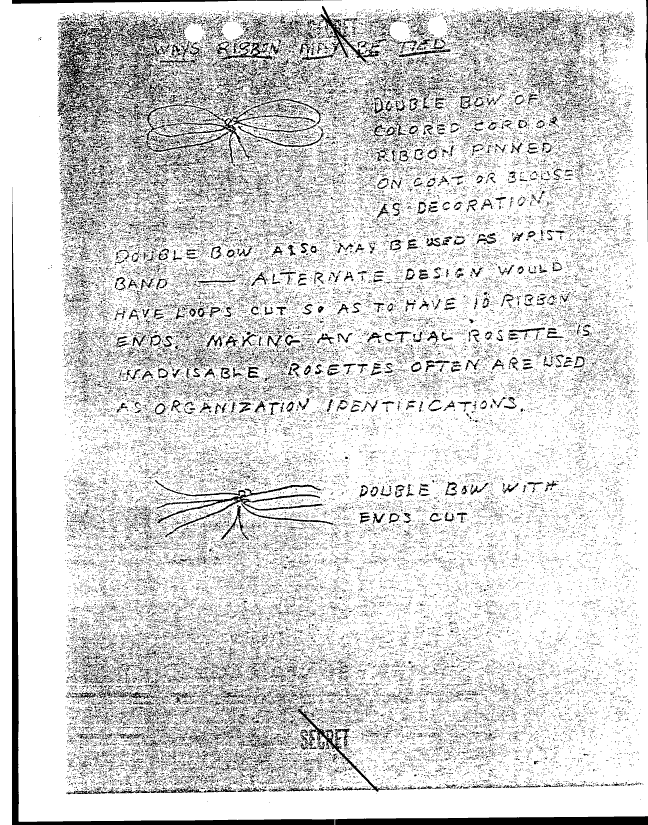 SECRET
WAYS RIBBON MAY BE TIED
DOUBLE BOW OF
COLORED CORD OR
RIBBON PINNED
ON COAT OR BLOUSE
AS DECORATION.
DOUBLE BOW ALSO MAY BE USED AS WRIST
BAND — ALTERNATE DESIGN WOULD
HAVE LOOPS CUT SO AS TO HAVE 10 RIBBON
ENDS. MAKING AN ACTUAL ROSETTE IS
INADVISABLE. ROSETTES OFTEN ARE USED
AS ORGANIZATION IDENTIFICATIONS.
DOUBLE BOW WITH
ENDS CUT
SECRET